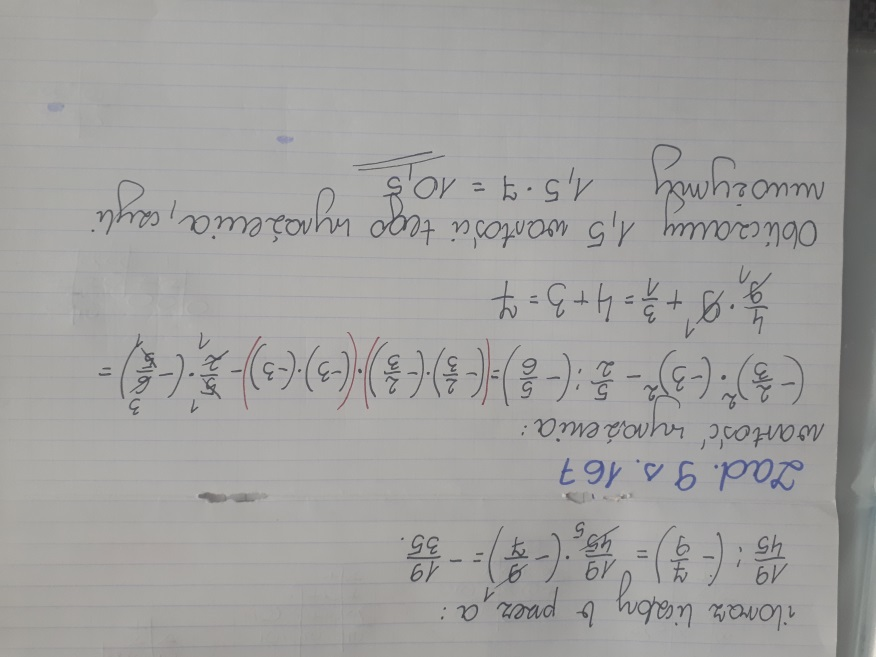 iloraz liczby b przez a:
19/45 : (- 7/9) = 19/45 5 · (- 9/7 1) = - 19/35.
Zad. 9 s. 167
wartość wyrażenia:
(- 2/3)² · (-3)² - 5/2 : (- 5/6) = ((- 2/3) · (- 2/3)) · ((-3) · (-3)) - 5/2 1 1 · (- 6/5 3 1) =
4/9 1 · 9 1 + 3/1 = 4 + 3 = 7
Obliczamy 1,5 wartości tego wyrażenia, czyli
mnożymy 1,5 · 7 = 10,5